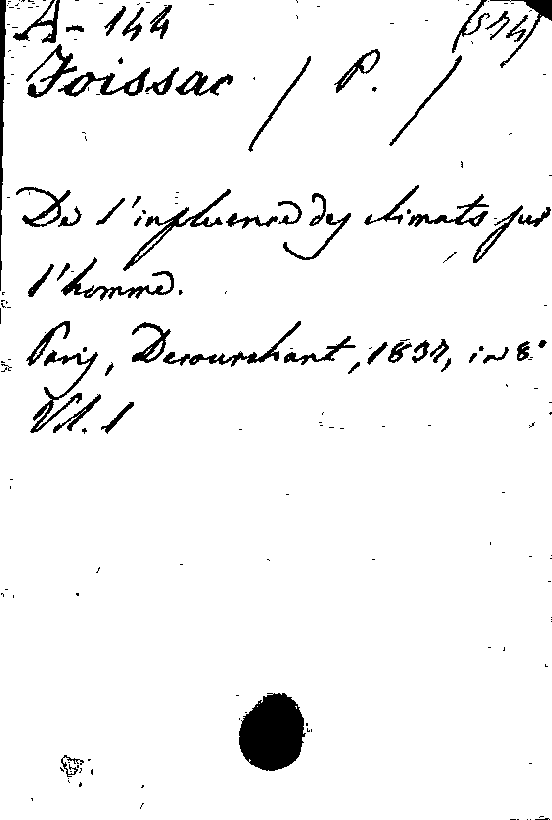 A-144 (574)
Foissac / P. /
De l'influence des climats sur
l'homme.
Paris, Decourchant, 1837, in 8°
Vol. 1